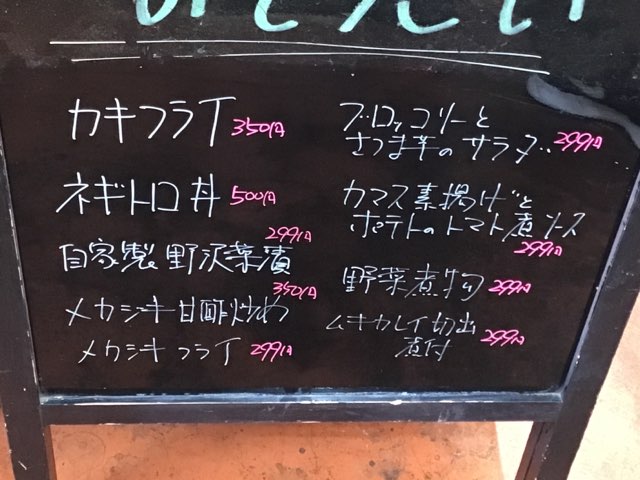 カキフライ 350円
ネギトロ丼 500円
299円
自家製野沢菜漬
350円
メカジキ甘酢炒め
メカジキフライ 299円
ブロッコリーと
さつま芋のサラダ 299円
カマス素揚げと
ポテトのトマト煮ソース
299円
野菜煮物 299円
ムキカレイ切出
煮付 299円